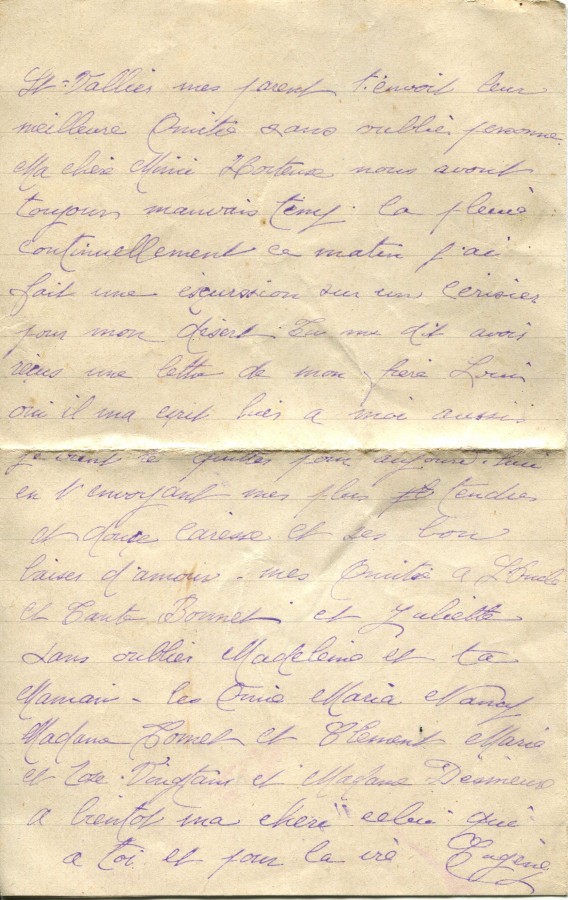 St-Vallier mes parent t'envoit leur
meilleure Amitié sans oublié personne.
Ma chère Mimi Hortense nous avont
toujours mauvais temp. la pluie
continuellement ce matin j'ai
fait une éscurssion sur un Cerisier
pour mon désert. Tu me dit avoir
reçus une lettre de mon frère Louis
oui il ma ecrit hier a moi aussis
je vient te quitter pour aujourd'hui
en t'envoyant mes plus tendres
et douce Caresse et ses bon
baiser d'amour - mes Amitié a L'Oncle
et Tante Bonnet et Juliette
sans oublier Madeleine et ta
Maman - les Amie Maria Nancy
Madame et Clement Marie
et et Madame
a bientot ma chèrï celui qui
a toi et pour la vie Eugène